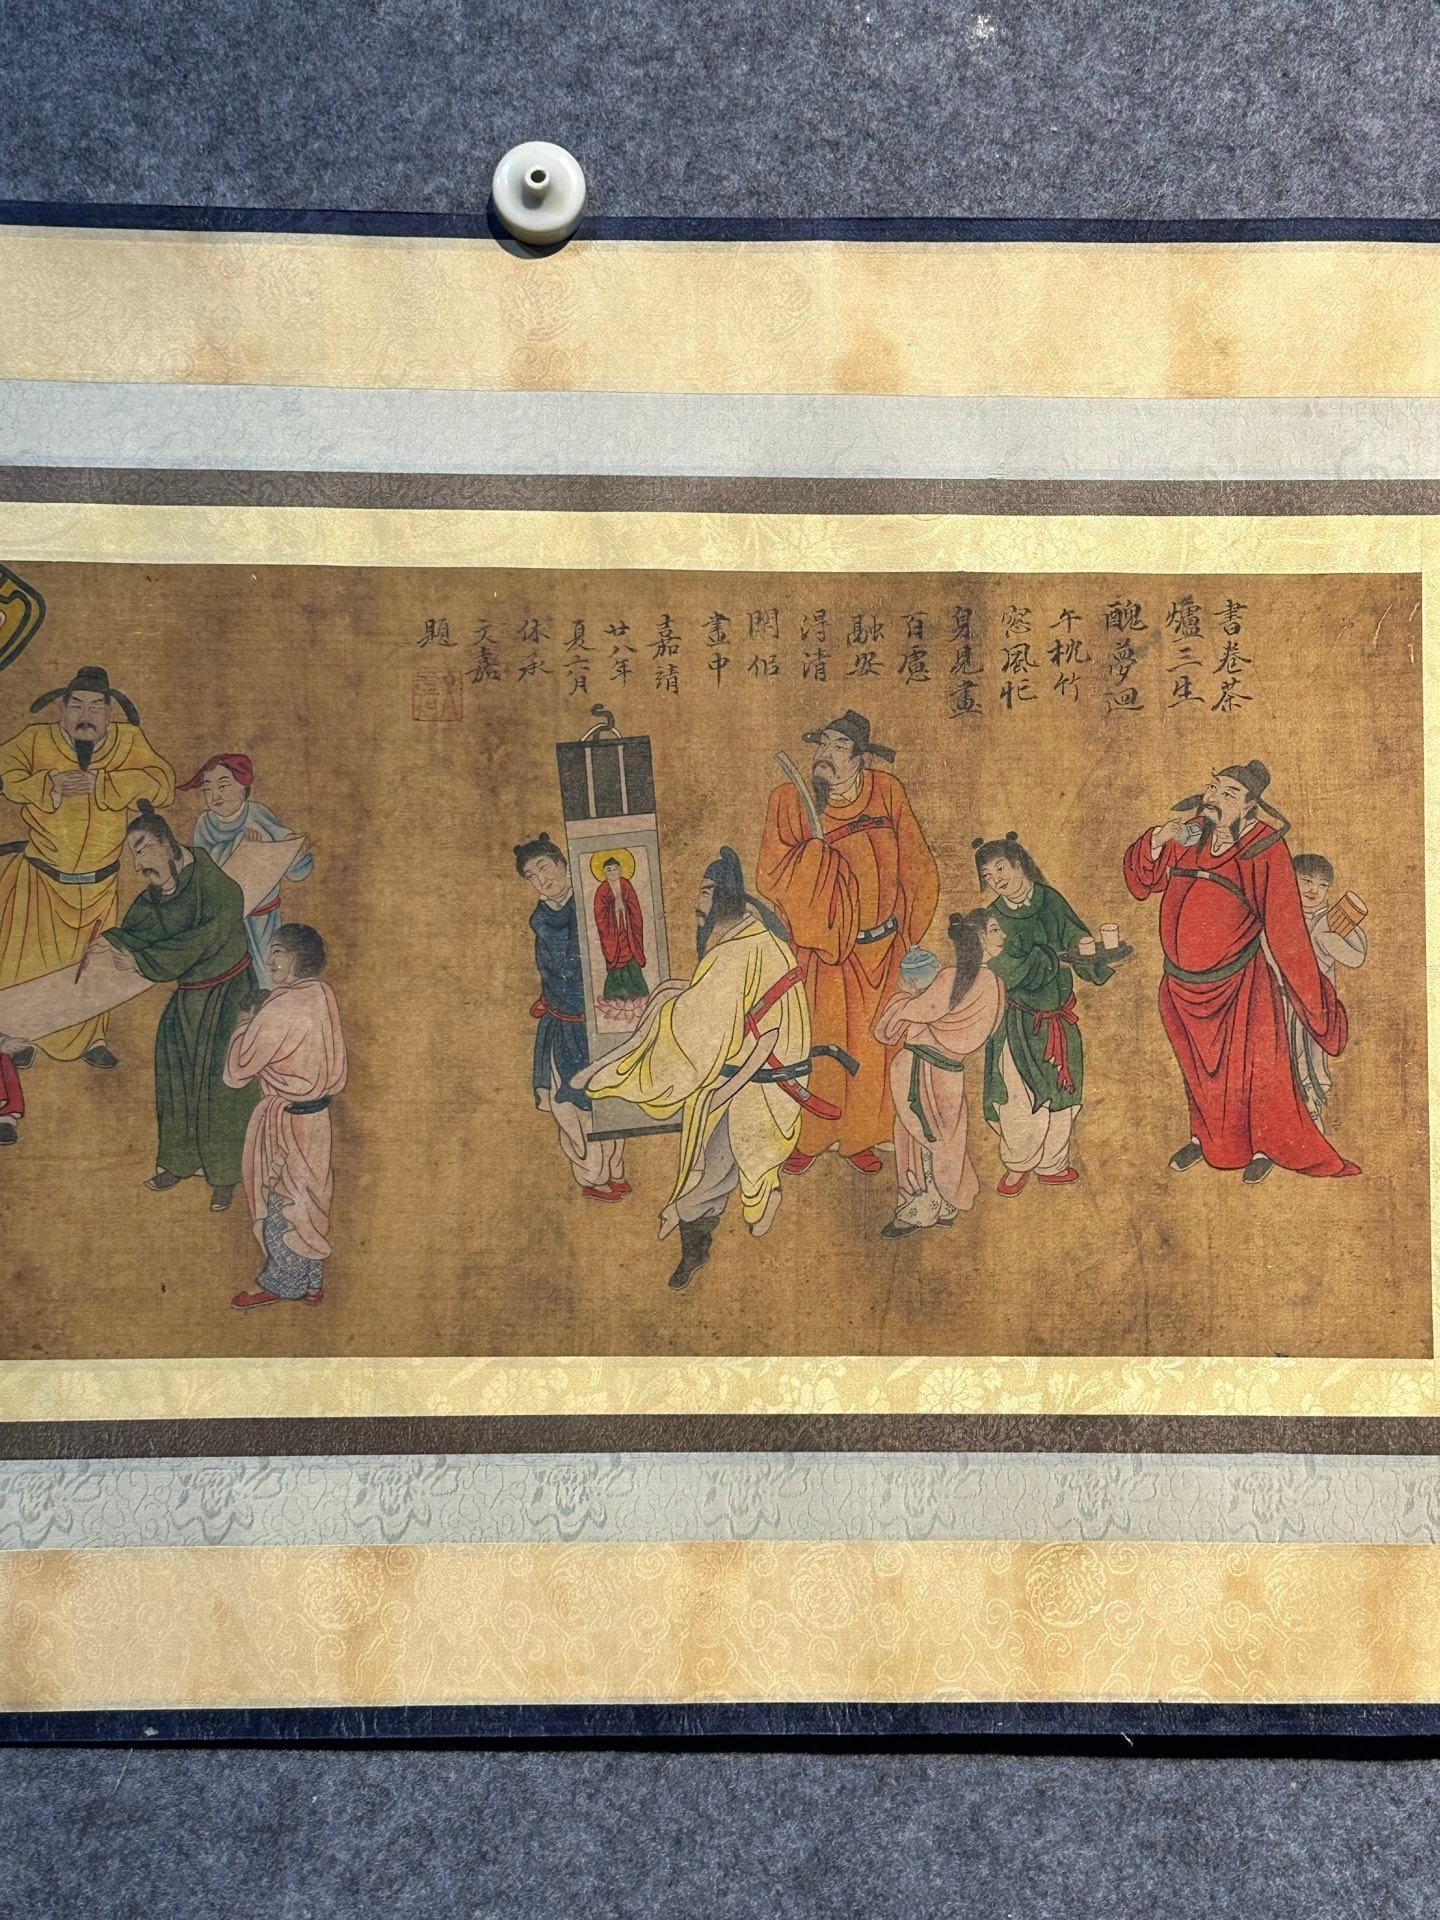 書卷茶
爐三生
醜夢迴
午枕竹
窓風忙
身見畫
百慮
融安
淂清
閑侣
畫中
嘉靖
廿八年
夏六月
休承
文嘉
題